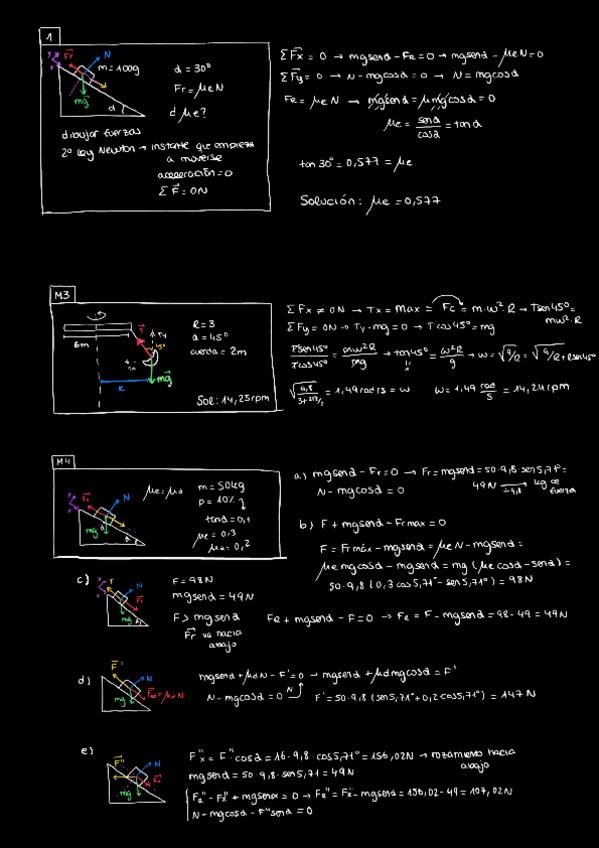 1
Fr N m = 100g α = 30°
mg α Fr = μe N
α μe?
dibujar fuerzas
2º Ley Newton → instante que empieza
a moverse
aceleración = 0
Σ F = 0N
Σ Fx = 0 → mg senα - Fr = 0 → mg senα - μe N = 0
Σ Fy = 0 → N - mg cosα = 0 → N = mg cosα
Fr = μe N → mg senα = μ mg cosα = 0
μe = senα / cosα = tanα
tan 30° = 0,577 = μe
Solución: μe = 0,577
M3
6m T Ty 45°
Tx
mg
R
R = 3
α = 45°
cuerda = 2m
Sol: 14,25 rpm
Σ Fx ≠ 0N → Tx = max = Fc = m·ω²·R → T sen 45° =
mω²·R
Σ Fy = 0N → Ty - mg = 0 → T cos 45° = mg
T sen 45° / T cos 45° = mω²R / mg → tan 45° = ω²R / g → ω = √g/R = √g/R+2sen45°
= 1,49 rad/s = ω ω = 1,49 rad/s = 14,24 rpm
M4
Fr N
mg α
m = 50kg
p = 10%
tanα = 0,1
μe = 0,3
μd = 0,2
a) mg senα - Fr = 0 → Fr = mg senα = 50·9,8·sen 5,71° =
N - mg cosα = 0 49N → ÷9,8 kg de fuerza
b) F + mg senα - Fr max = 0
F = Fr máx - mg senα = μe N - mg senα =
μe mg cosα - mg senα = mg (μe cosα - senα) =
50·9,8 (0,3 cos 5,71° - sen 5,71°) = 98N
c) F N Fr mg
F = 98N
mg senα = 49N
F > mg senα
Fr va hacia
abajo
Fr + mg senα - F = 0 → Fr = F - mg senα = 98 - 49 = 49N
d) F' N Frd = μd N mg
mg senα + μd N - F' = 0 → mg senα + μd mg cosα = F'
N - mg cosα = 0 N F' = 50·9,8 (sen 5,71° + 0,2 cos 5,71°) = 147N
e) F'' N Fr mg
F''x = F'' cosα = 16·9,8·cos 5,71° = 156,02N → rozamiento hacia
abajo
mg senα = 50·9,8·sen 5,71 = 49N
Fr'' - Fx'' + mg senα = 0 → Fr'' = Fx'' - mg senα = 156,02 - 49 = 107,02N
N - mg cosα - F'' senα = 0